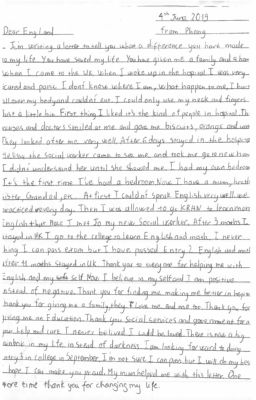 4th June 2019
Dear England from Phong
I'm writing a letter to tell you what a difference you have made
to my life. You have saved my life. You have given me a family and a home
When I came to the UK when I woke up in the hospital I was very
scared and panic I don't know where I am, what happen to me, I hurt
all over my body and couldn't eat. I could only use my neck and fingers
just a little bit. First thing I liked it's the kind of people in hospital. The
nurses and doctors smiled at me and gave me biscuits, orange, and
They looked after me very well. After 6 days stayed in the hospital
the social worker came to see me and took me to new home
I didn't understand her until she showed me. I had my own bedroom
It's the first time I've had a bedroom. Now I have a mum,
sister, Grandad, etc. At first I couldn't speak English very well we
practiced every day. Then I was allowed to go KRAN to learn more
English + have More I met Jo my new Social worker. After 3 months I
stayed in UK I go to the college to learn English and math. I never
thing I can pass exam but I have passed Entry 2 English and math
after 11 months stayed in UK. Thank you to everyone for helping me with
English and my self Now I believe in myself and I am positive
instead of negative. Thank you for finding me, making me better in hospital
thank you for giving me a family, they love me and me too. Thank you for
giving me an Education. Thank you Social services and government for
your help and care I never believed I could be loved. There is now a big
in my life instead of darkness. I am looking forward to doing
in college in September. I'm not sure I can pass but I will do my best
hope I can make you proud. My mum helped me with this letter. One
more time thank you for changing my life.